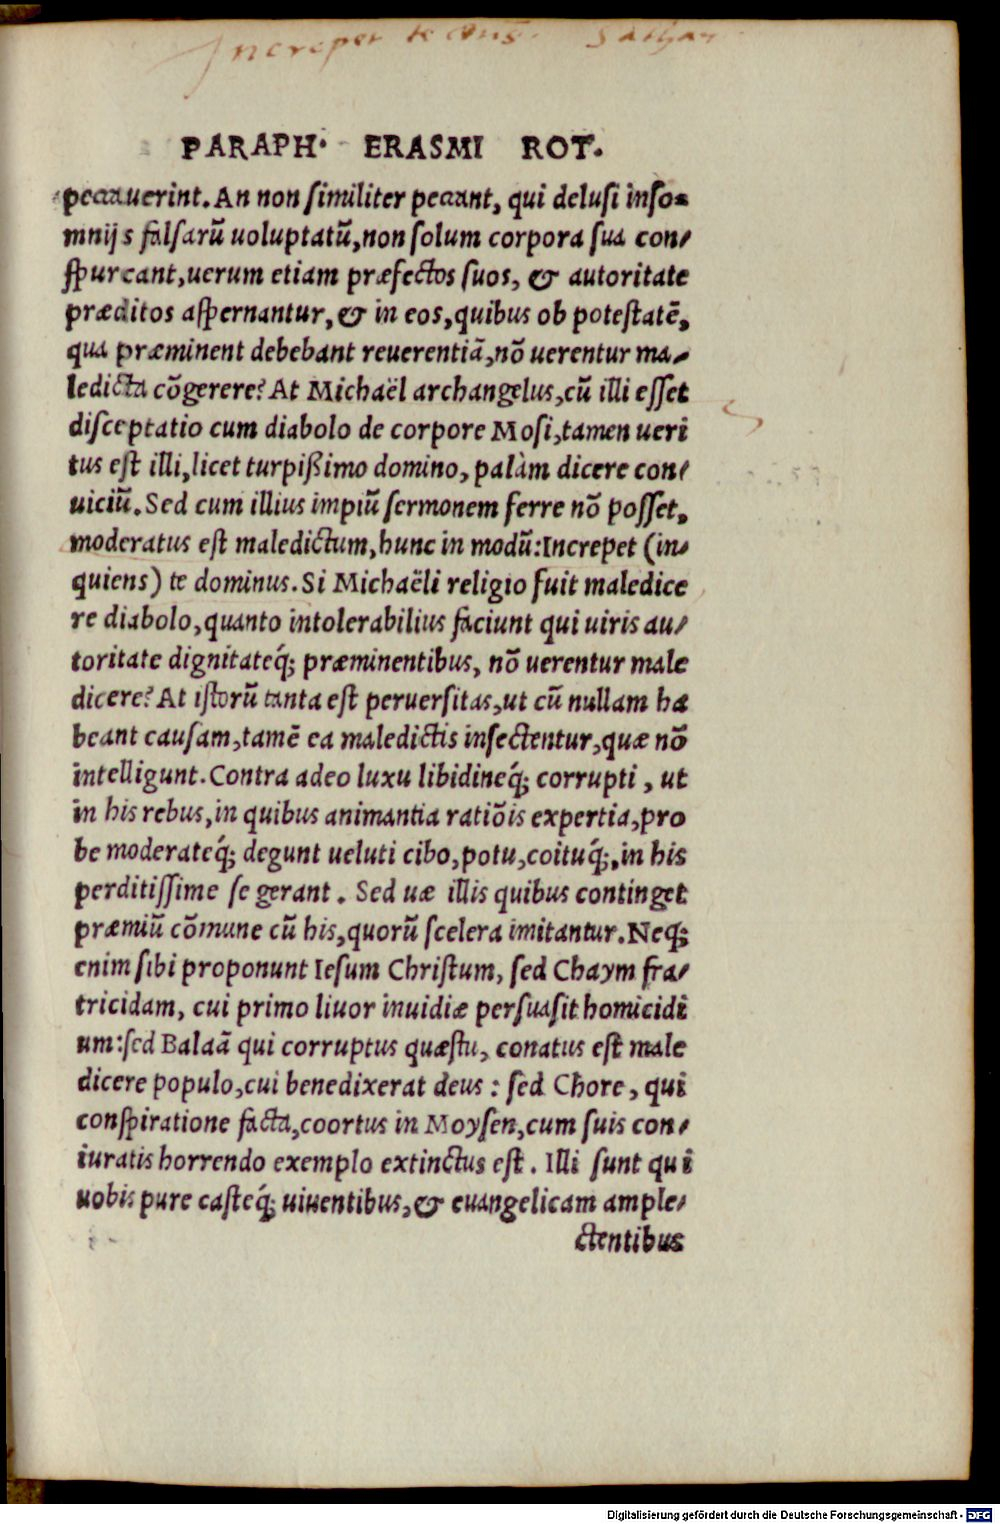 Increpet te dn̄s. Sathan
PARAPH· ERASMI ROT.
peccauerint. An non ſimiliter peccant, qui deluſi inſo-
mnijs falſarū uoluptatū, non ſolum corpora ſua con-
ſpurcant, uerum etiam præfectos ſuos, & autoritate
præditos aſpernantur, & in eos, quibus ob poteſtatē,
qua præminent debebant reuerentiā, nō uerentur ma-
ledicta cōgerere? At Michaël archangelus, cū illi eſſet
diſceptatio cum diabolo de corpore Moſi, tamen ueri
tus eſt illi, licet turpißimo domino, palàm dicere con-
uiciū. Sed cum illius impiū ſermonem ferre nō poſſet,
moderatus eſt maledictum, hunc in modū: Increpet (in-
quiens) te dominus. Si Michaëli religio fuit maledice
re diabolo, quanto intolerabilius faciunt qui uiris au-
toritate dignitateq́; præminentibus, nō uerentur male
dicere? At iſtorū tanta eſt peruerſitas, ut cū nullam ha
beant cauſam, tamē ea maledictis inſectentur, quæ nō
intelligunt. Contra adeo luxu libidineq́; corrupti, ut
in his rebus, in quibus animantia ratiōis expertia, pro
be moderateq́; degunt ueluti cibo, potu, coituq́;, in his
perditiſſime ſe gerant. Sed uæ illis quibus continget
præmiū cōmune cū his, quorū ſcelera imitantur. Neq;
enim ſibi proponunt Ieſum Chriſtum, ſed Chaym fra-
tricidam, cui primo liuor inuidiæ perſuaſit homicidi
um: ſed Balaā qui corruptus quæſtu, conatus eſt male
dicere populo, cui benedixerat deus: ſed Chore, qui
conſpiratione facta, coortus in Moyſen, cum ſuis con-
iuratis horrendo exemplo extinctus eſt. Illi ſunt qui
uobis pure caſteq́; uiuentibus, & euangelicam ample-
ctentibus
Digitalisierung gefördert durch die Deutsche Forschungsgemeinschaft - DFG